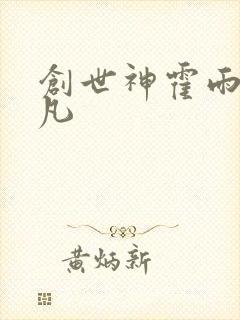 創世神霍雨
凡
黃炳新